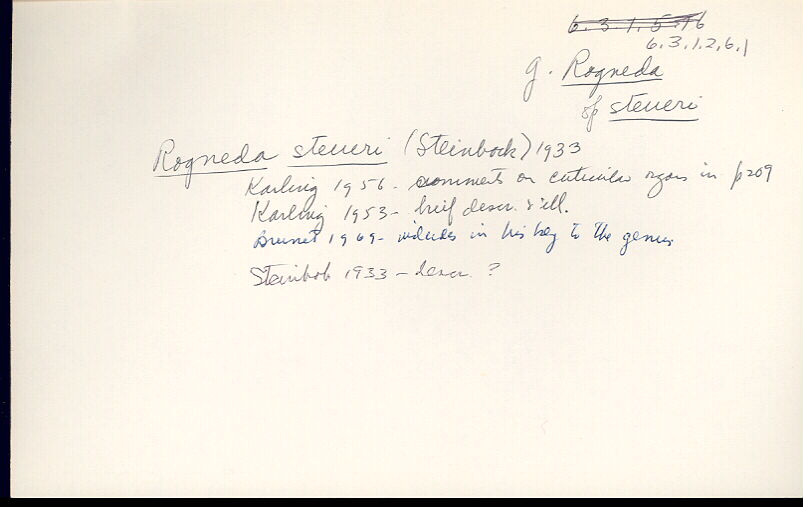 6.3.1.5.16
6,3,1,2,6,1
g. Rogneda
of steueri
Rogneda steueri (Steinbock) 1933
Karling 1956 - comments on cuticular organs in p209
Karling 1953 - brief descr. & ill.
Brunet 1969 - includes in his key to the genus
Steinbok 1933 - descr. ?